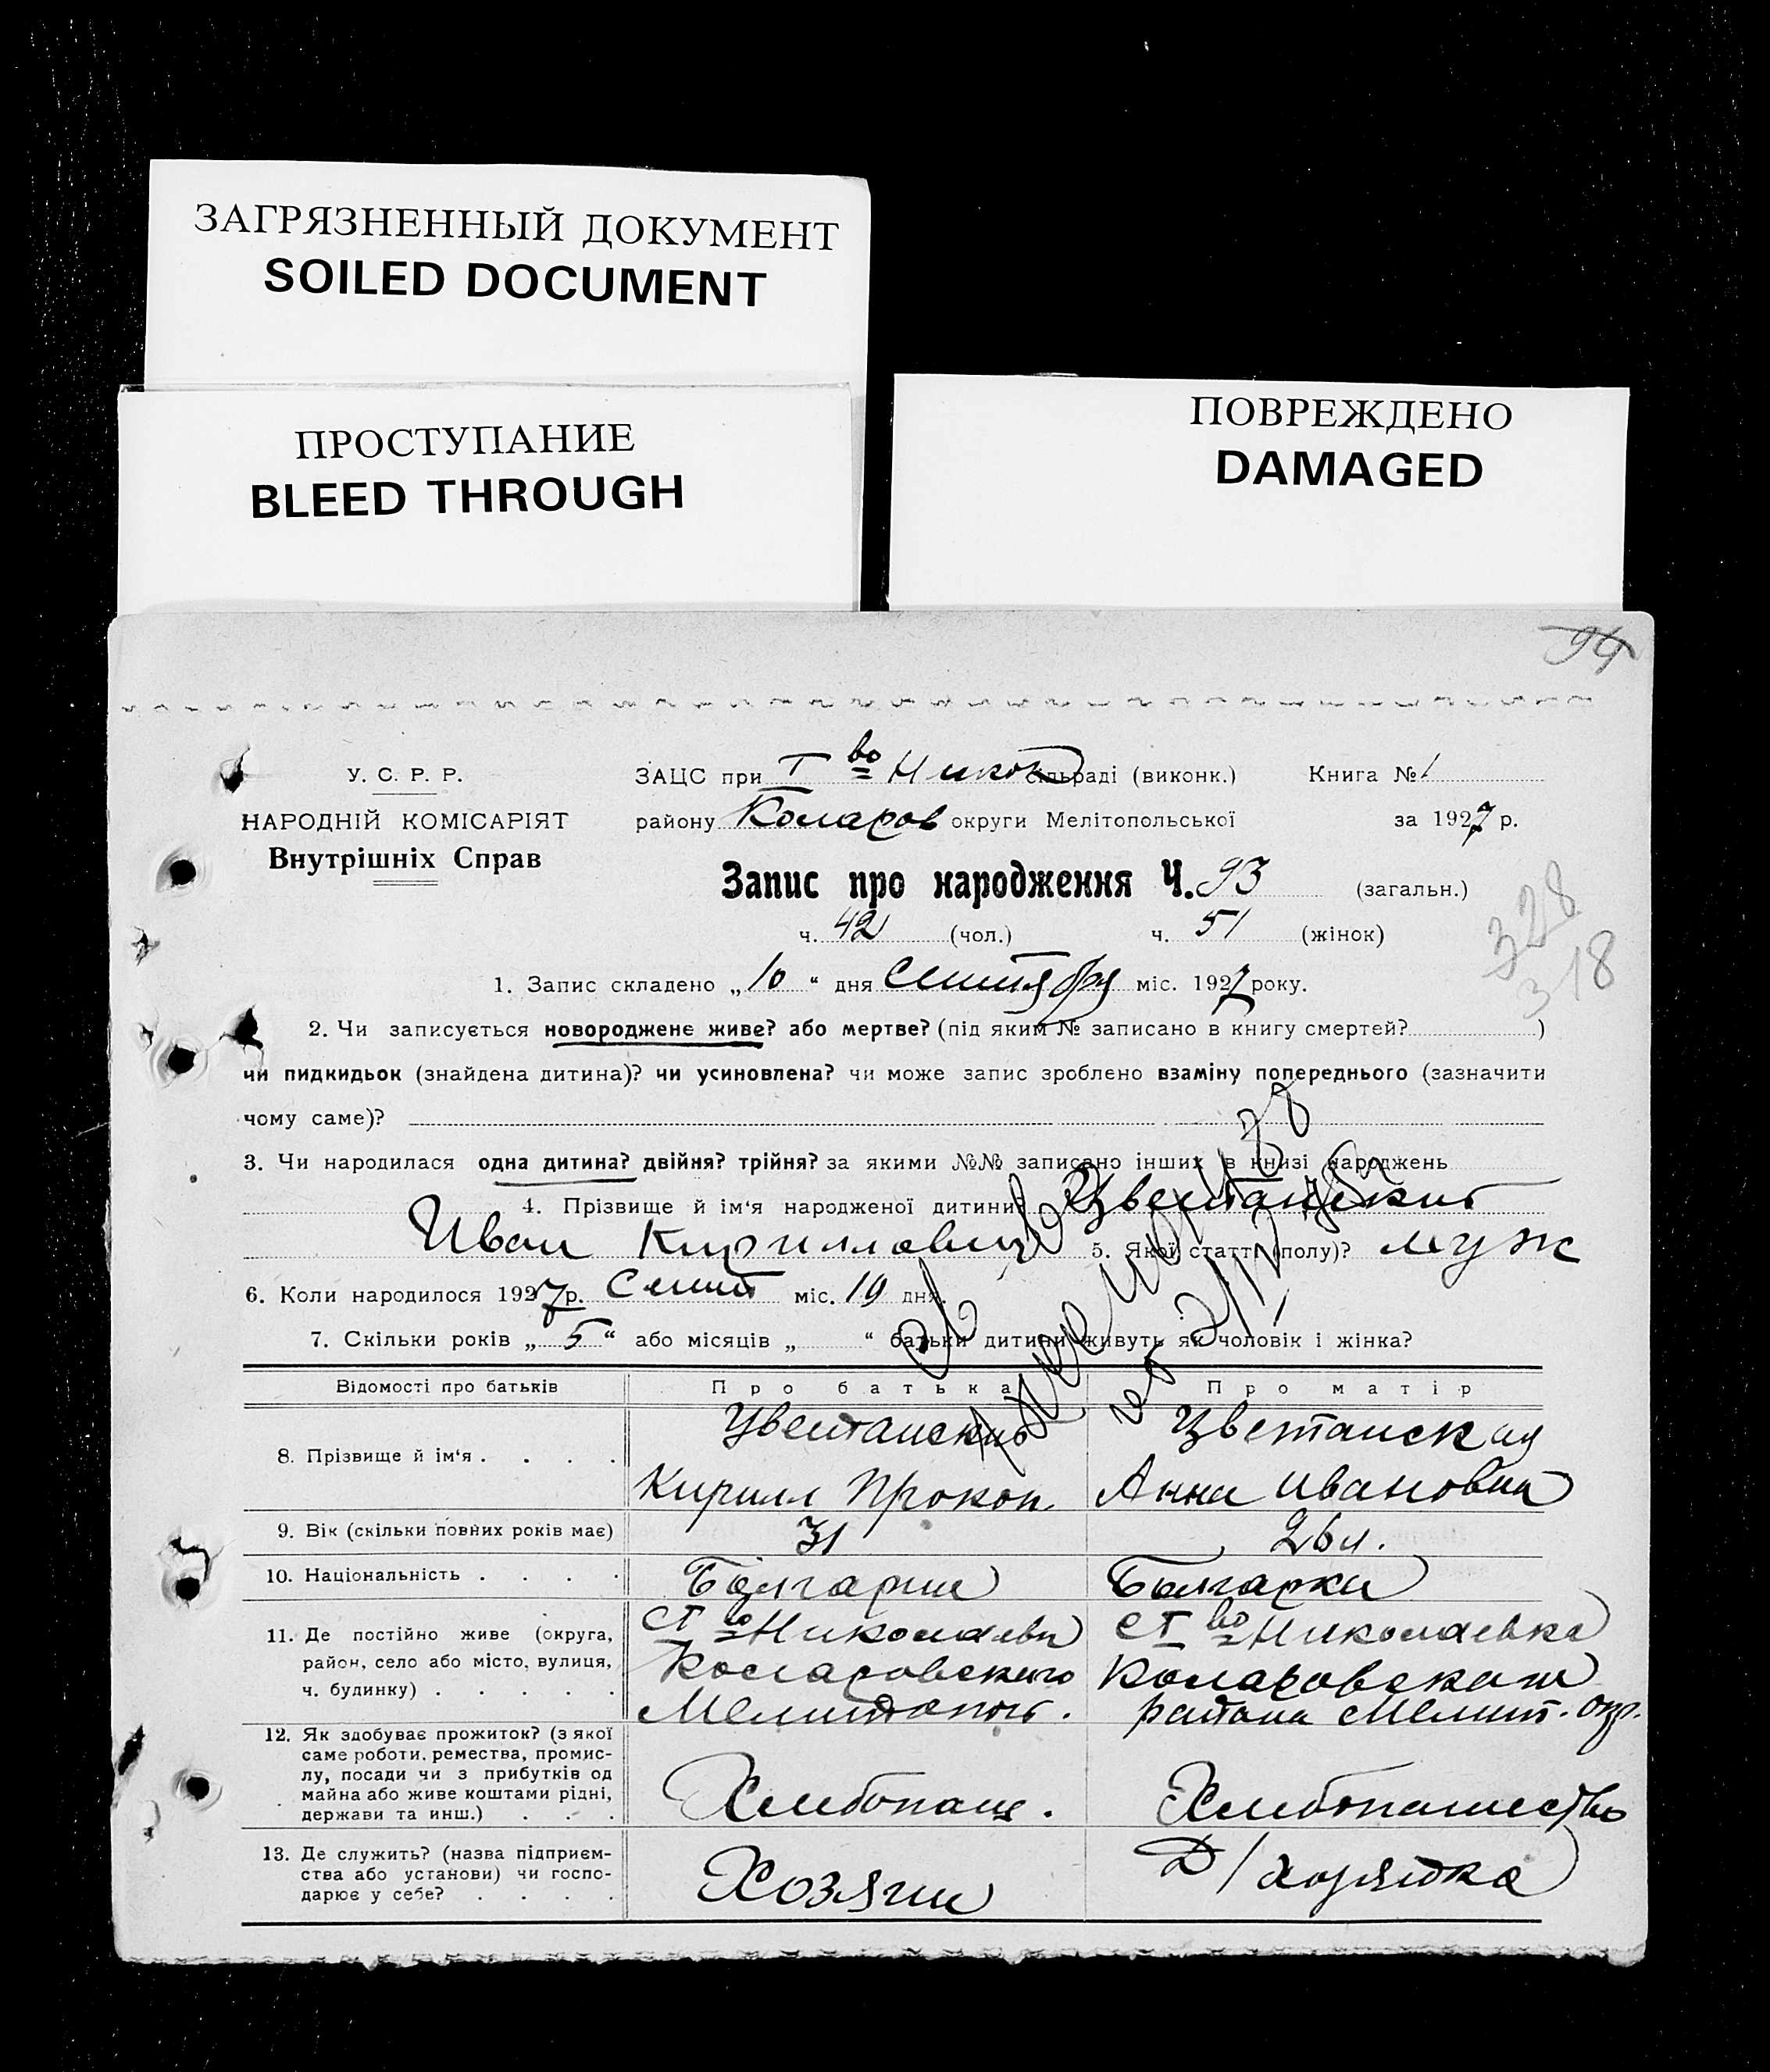 ЗАГРЯЗНЕННЫЙ ДОКУМЕНТ
SOILED DOCUMENT
ПРОСТУПАНИЕ
BLEED THROUGH
ПОВРЕЖДЕНО
DAMAGED
94
У. С. Р. Р.
НАРОДНІЙ КОМІСАРІЯТ
Внутрішніх Справ
ЗАЦС при Т во Никол сільраді (виконк.) Книга № 1
району Коларов округи Мелітопольської за 1927 р.
Запис про народження Ч. 93 (загальн.)
ч. 42 (чол.) ч. 51 (жінок)
328
318
1. Запис складено „10“ дня Сентября міс. 1927 року.
2. Чи записується новороджене живе? або мертве? (під яким № записано в книгу смертей? )
чи пидкидьок (знайдена дитина)? чи усиновлена? чи може запис зроблено взаміну попереднього (зазначити
чому саме)?
3. Чи народилася одна дитина? двійня? трійня? за якими №№ записано інших в книзі народжень
4. Прізвище й ім‘я народженої дитини? Цветанский
Иван Кириллович 5. Якої статті (полу)? муж
6. Коли народилося 1927 р. Сент міс. 19 дня.
7. Скільки років „5“ або місяців „ “ батьки дитини живуть як чоловік і жінка?
Відомості про батьків Про батька Про матір
8. Прізвище й ім‘я . . . . Цветанский Цветанская
Кирилл Прокоп. Анна Ивановна
9. Вік (скільки повних років має) 31 26 л.
10. Національність . . . . Болгарин Болгарка
11. Де постійно живе (округа, район, село або місто, вулиця, ч. будинку) . . . . .
Ст во Николаевка
Коларовского
Мелитопол.
Ст во Николаевка
Коларовского
района Мелит. окр.
12. Як здобуває прожиток? (з якої
саме роботи, ремества, промис-
лу, посади чи з прибутків од
майна або живе коштами рідні,
держави та инш.) . . .
Хлебопащ. Хлебопашество
13. Де служить? (назва підприєм-
ства або установи) чи госпо-
дарює у себе? . . . .
Хозяин Д/хозяйка